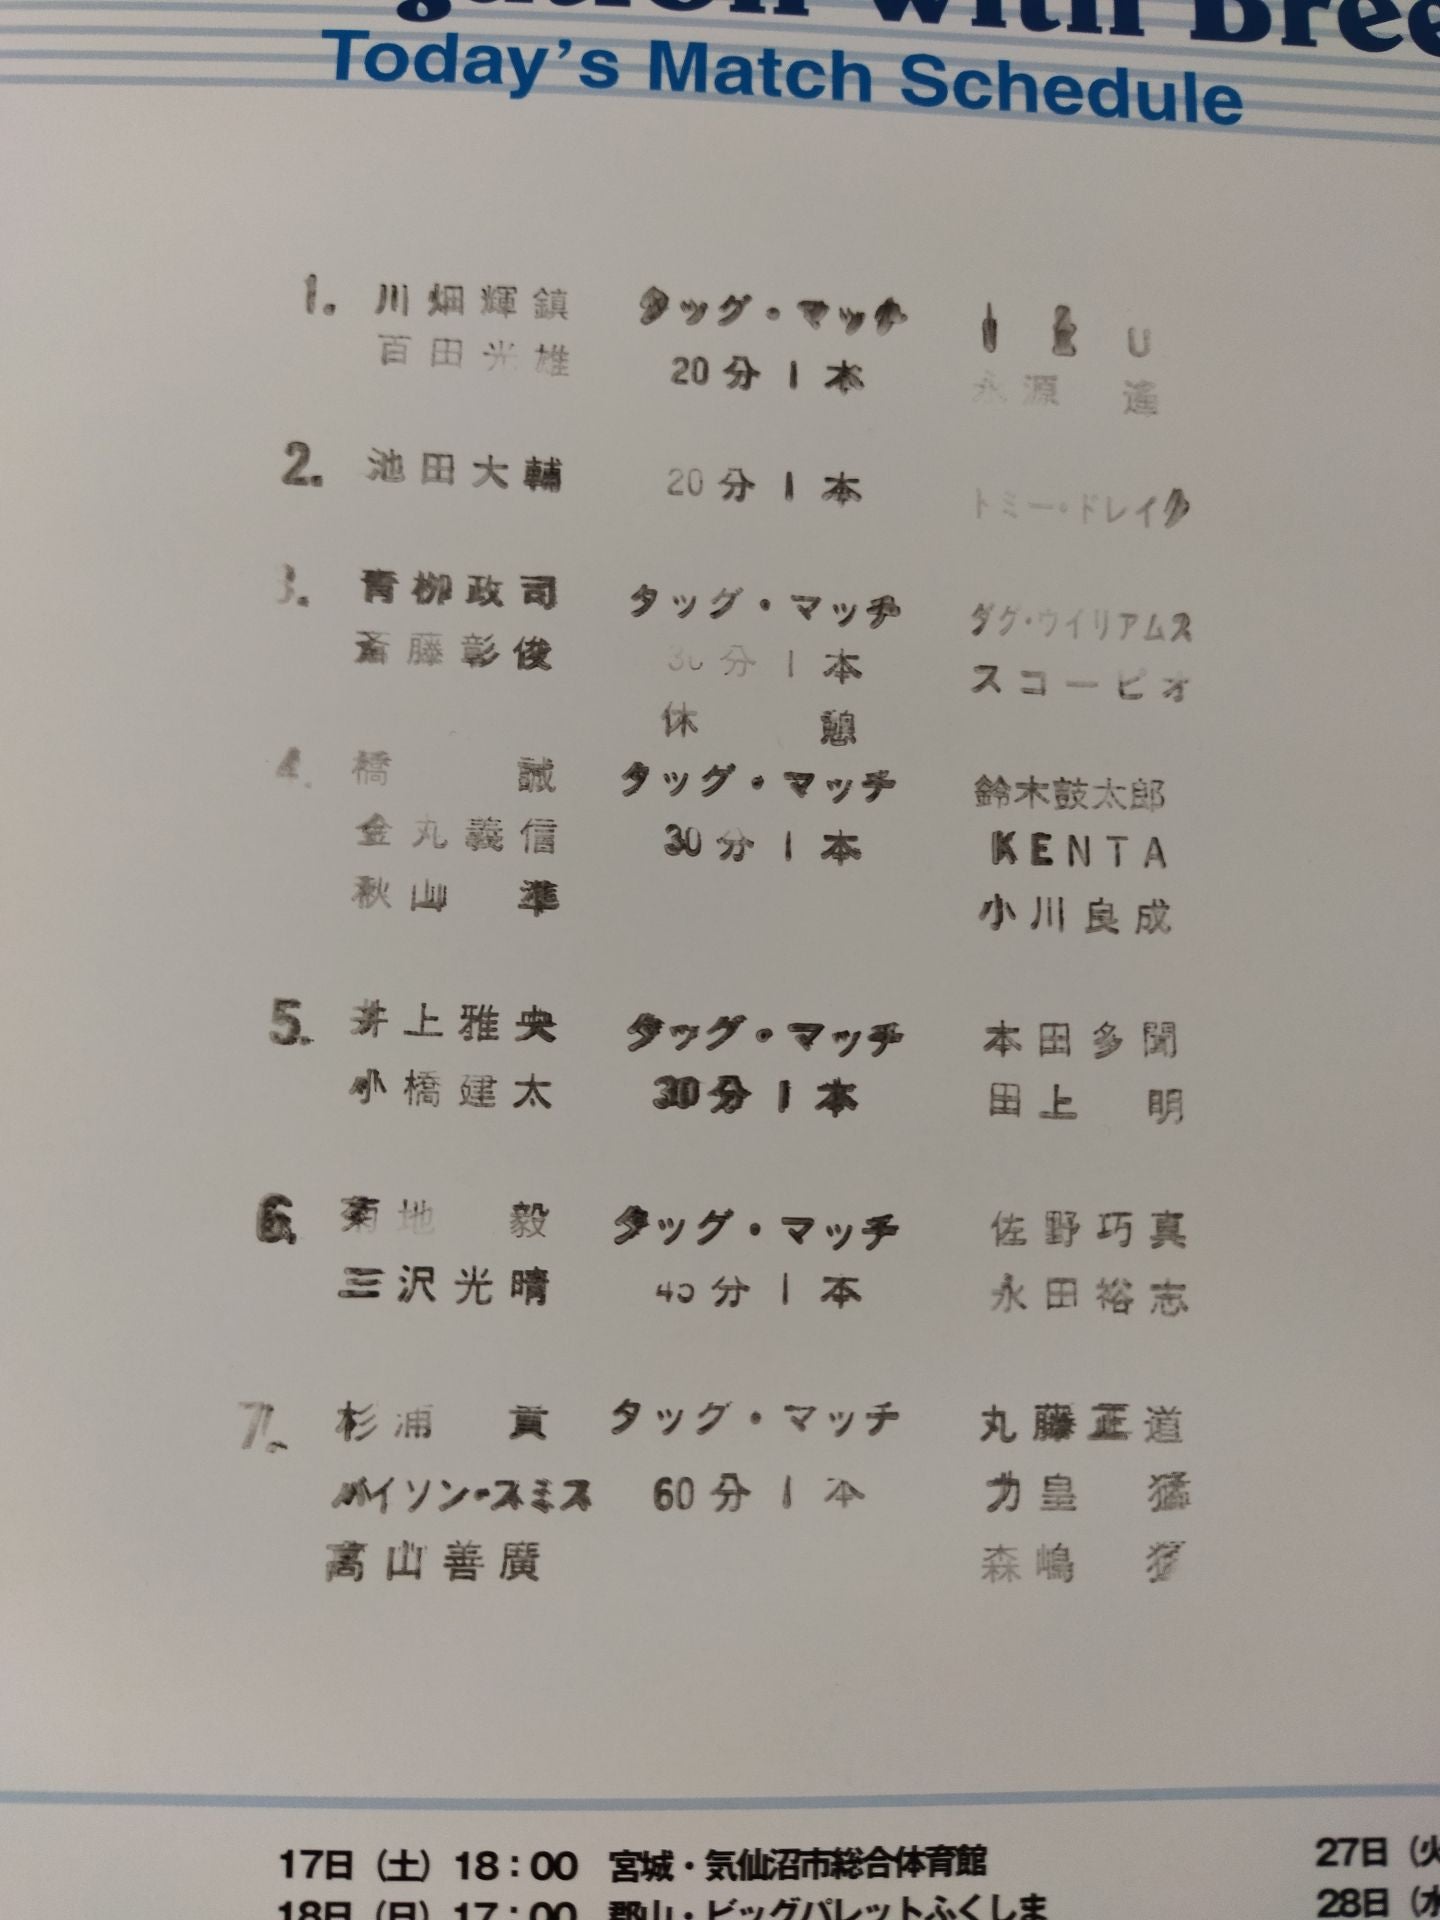 with Bree
Today's Match Schedule
1. 川畑輝鎮 タッグ・マッチ U
百田光雄 20分1本 永源 遙
2. 池田大輔 20分1本 トミー・ドレイク
3. 青柳政司 タッグ・マッチ ダグ・ウイリアムス
斎藤彰俊 30分1本 スコーピオ
休 憩
4. 橋 誠 タッグ・マッチ 鈴木鼓太郎
金丸義信 30分1本 KENTA
秋山 準 小川良成
5. 井上雅央 タッグ・マッチ 本田多聞
小橋建太 30分1本 田上 明
6. 菊地 毅 タッグ・マッチ 佐野巧真
三沢光晴 45分1本 永田裕志
7. 杉浦 貴 タッグ・マッチ 丸藤正道
バイソン・スミス 60分1本 力皇 猛
高山善廣 森嶋 猛
17日（土）18：00 宮城・気仙沼市総合体育館 27日（火
18日（日）17：00 郡山・ビッグパレットふくしま 28日（水